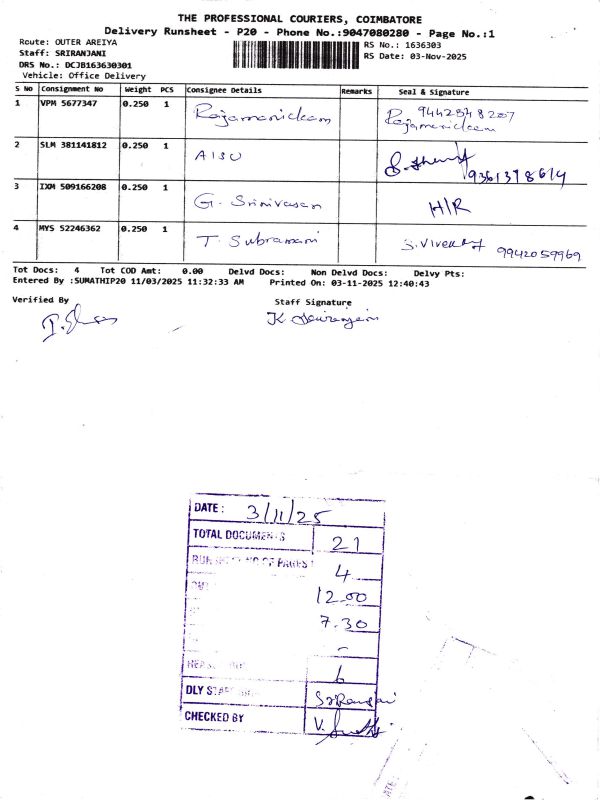 THE PROFESSIONAL COURIERS, COIMBATORE
Delivery Runsheet - P20 - Phone No.:9047080280 - Page No.:1
Route: OUTER AREIYA
Staff: SRIRANJANI
DRS No.: DCJB163630301
Vehicle: Office Delivery
RS No.: 1636303
RS Date: 03-Nov-2025
S No Consignment No Weight PCS Consignee Details Remarks Seal & Signature
1 VPM 5677347 0.250 1 Rajamanickam 9442548207
Rajamanickam
2 SLM 381141812 0.250 1 AISU 9361398614
3 IXM 509166208 0.250 1 G. Srinivasan H/R
4 MYS 52246362 0.250 1 T. Subramani S. Vivek 9942059969
Tot Docs: 4 Tot COD Amt: 0.00 Delvd Docs: Non Delvd Docs: Delvy Pts:
Entered By :SUMATHIP20 11/03/2025 11:32:33 AM Printed On: 03-11-2025 12:40:43
Verified By
Staff Signature
DATE : 3/11/25
TOTAL DOCUMENTS 21
NO OF PAGES 4
12.00
7.30
-
6
DLY STAFF
CHECKED BY V.